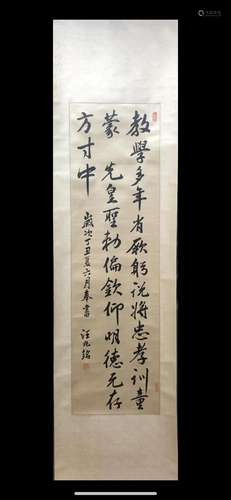 教學多年省厥躬說將忠孝訓童
蒙先皇聖勅倫欽仰明德元存
方寸中
歲次丁丑夏六月奉書
汪兆銘